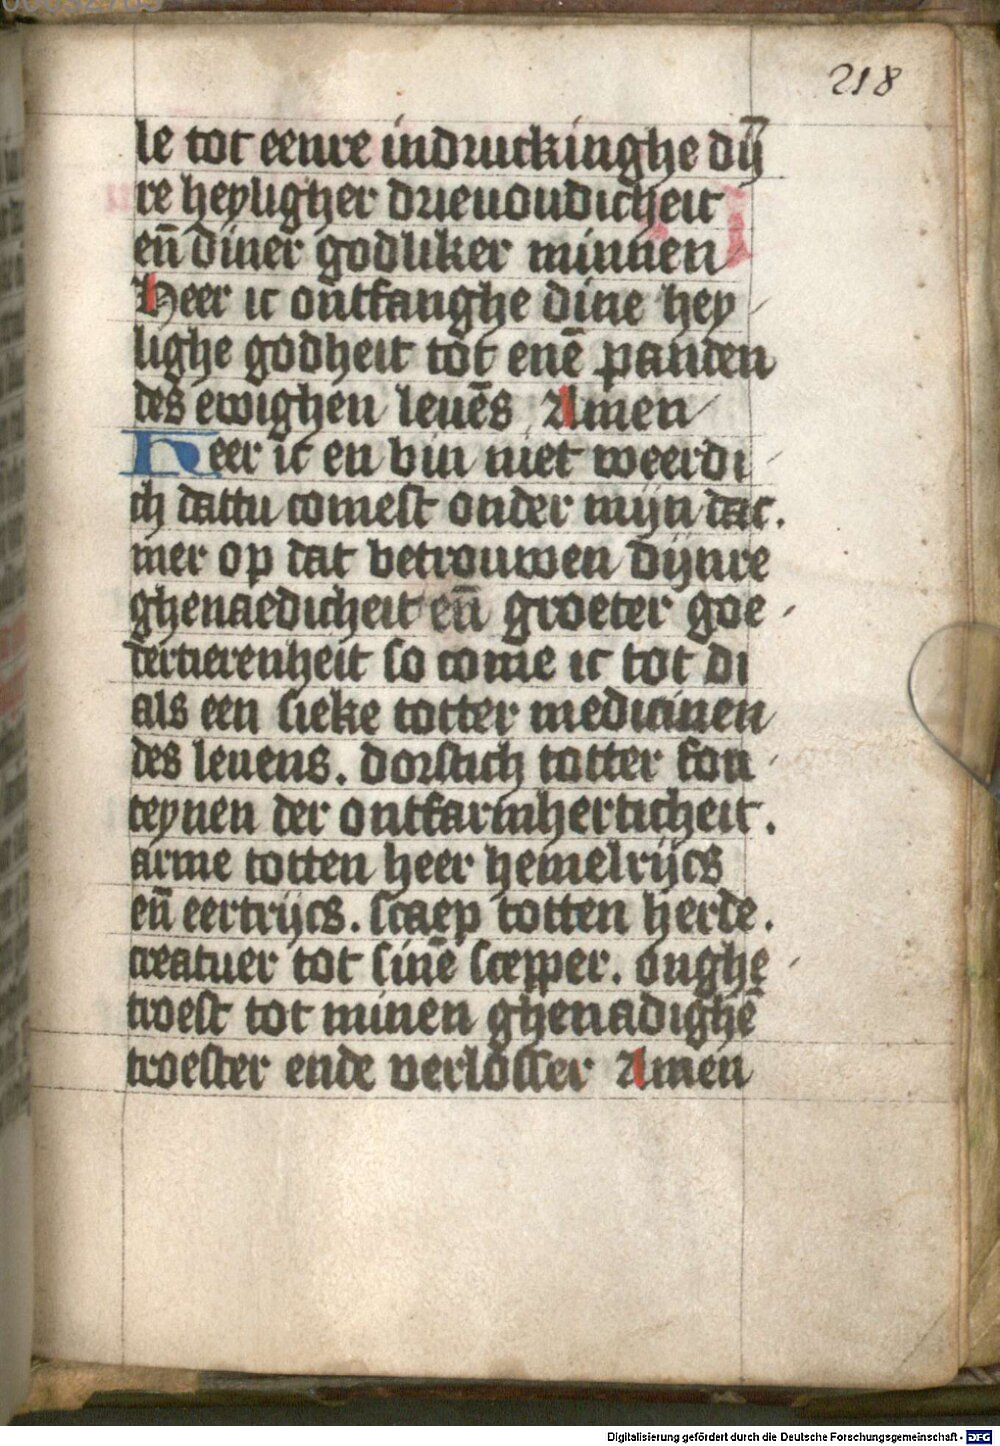 218
le tot eenre indruckinghe dÿ̄
re heyligher drieuoudicheit
en̄ diner godliker minnen
Heer ic ontfanghe dine hey
lighe godheit tot enē panden
des ewighen leuēs Amen
Heer ic en bin niet weerdi
ch dattu comest onder mijn dac.
mer op dat betrouwen dijnre
ghenaedicheit en̄ groeter goe
dertierenheit so come ic tot di
als een sieke totter medicinen
des leuens. dorstich totter fon
teynen der ontfarmherticheit.
arme totten heer hemelrijcs
en̄ eertrijcs. scaep totten herde.
creatuer tot sinē scepper. onghe
troest tot minen ghenadighē
troester ende verlosser Amen
Digitalisierung gefördert durch die Deutsche Forschungsgemeinschaft - DFG